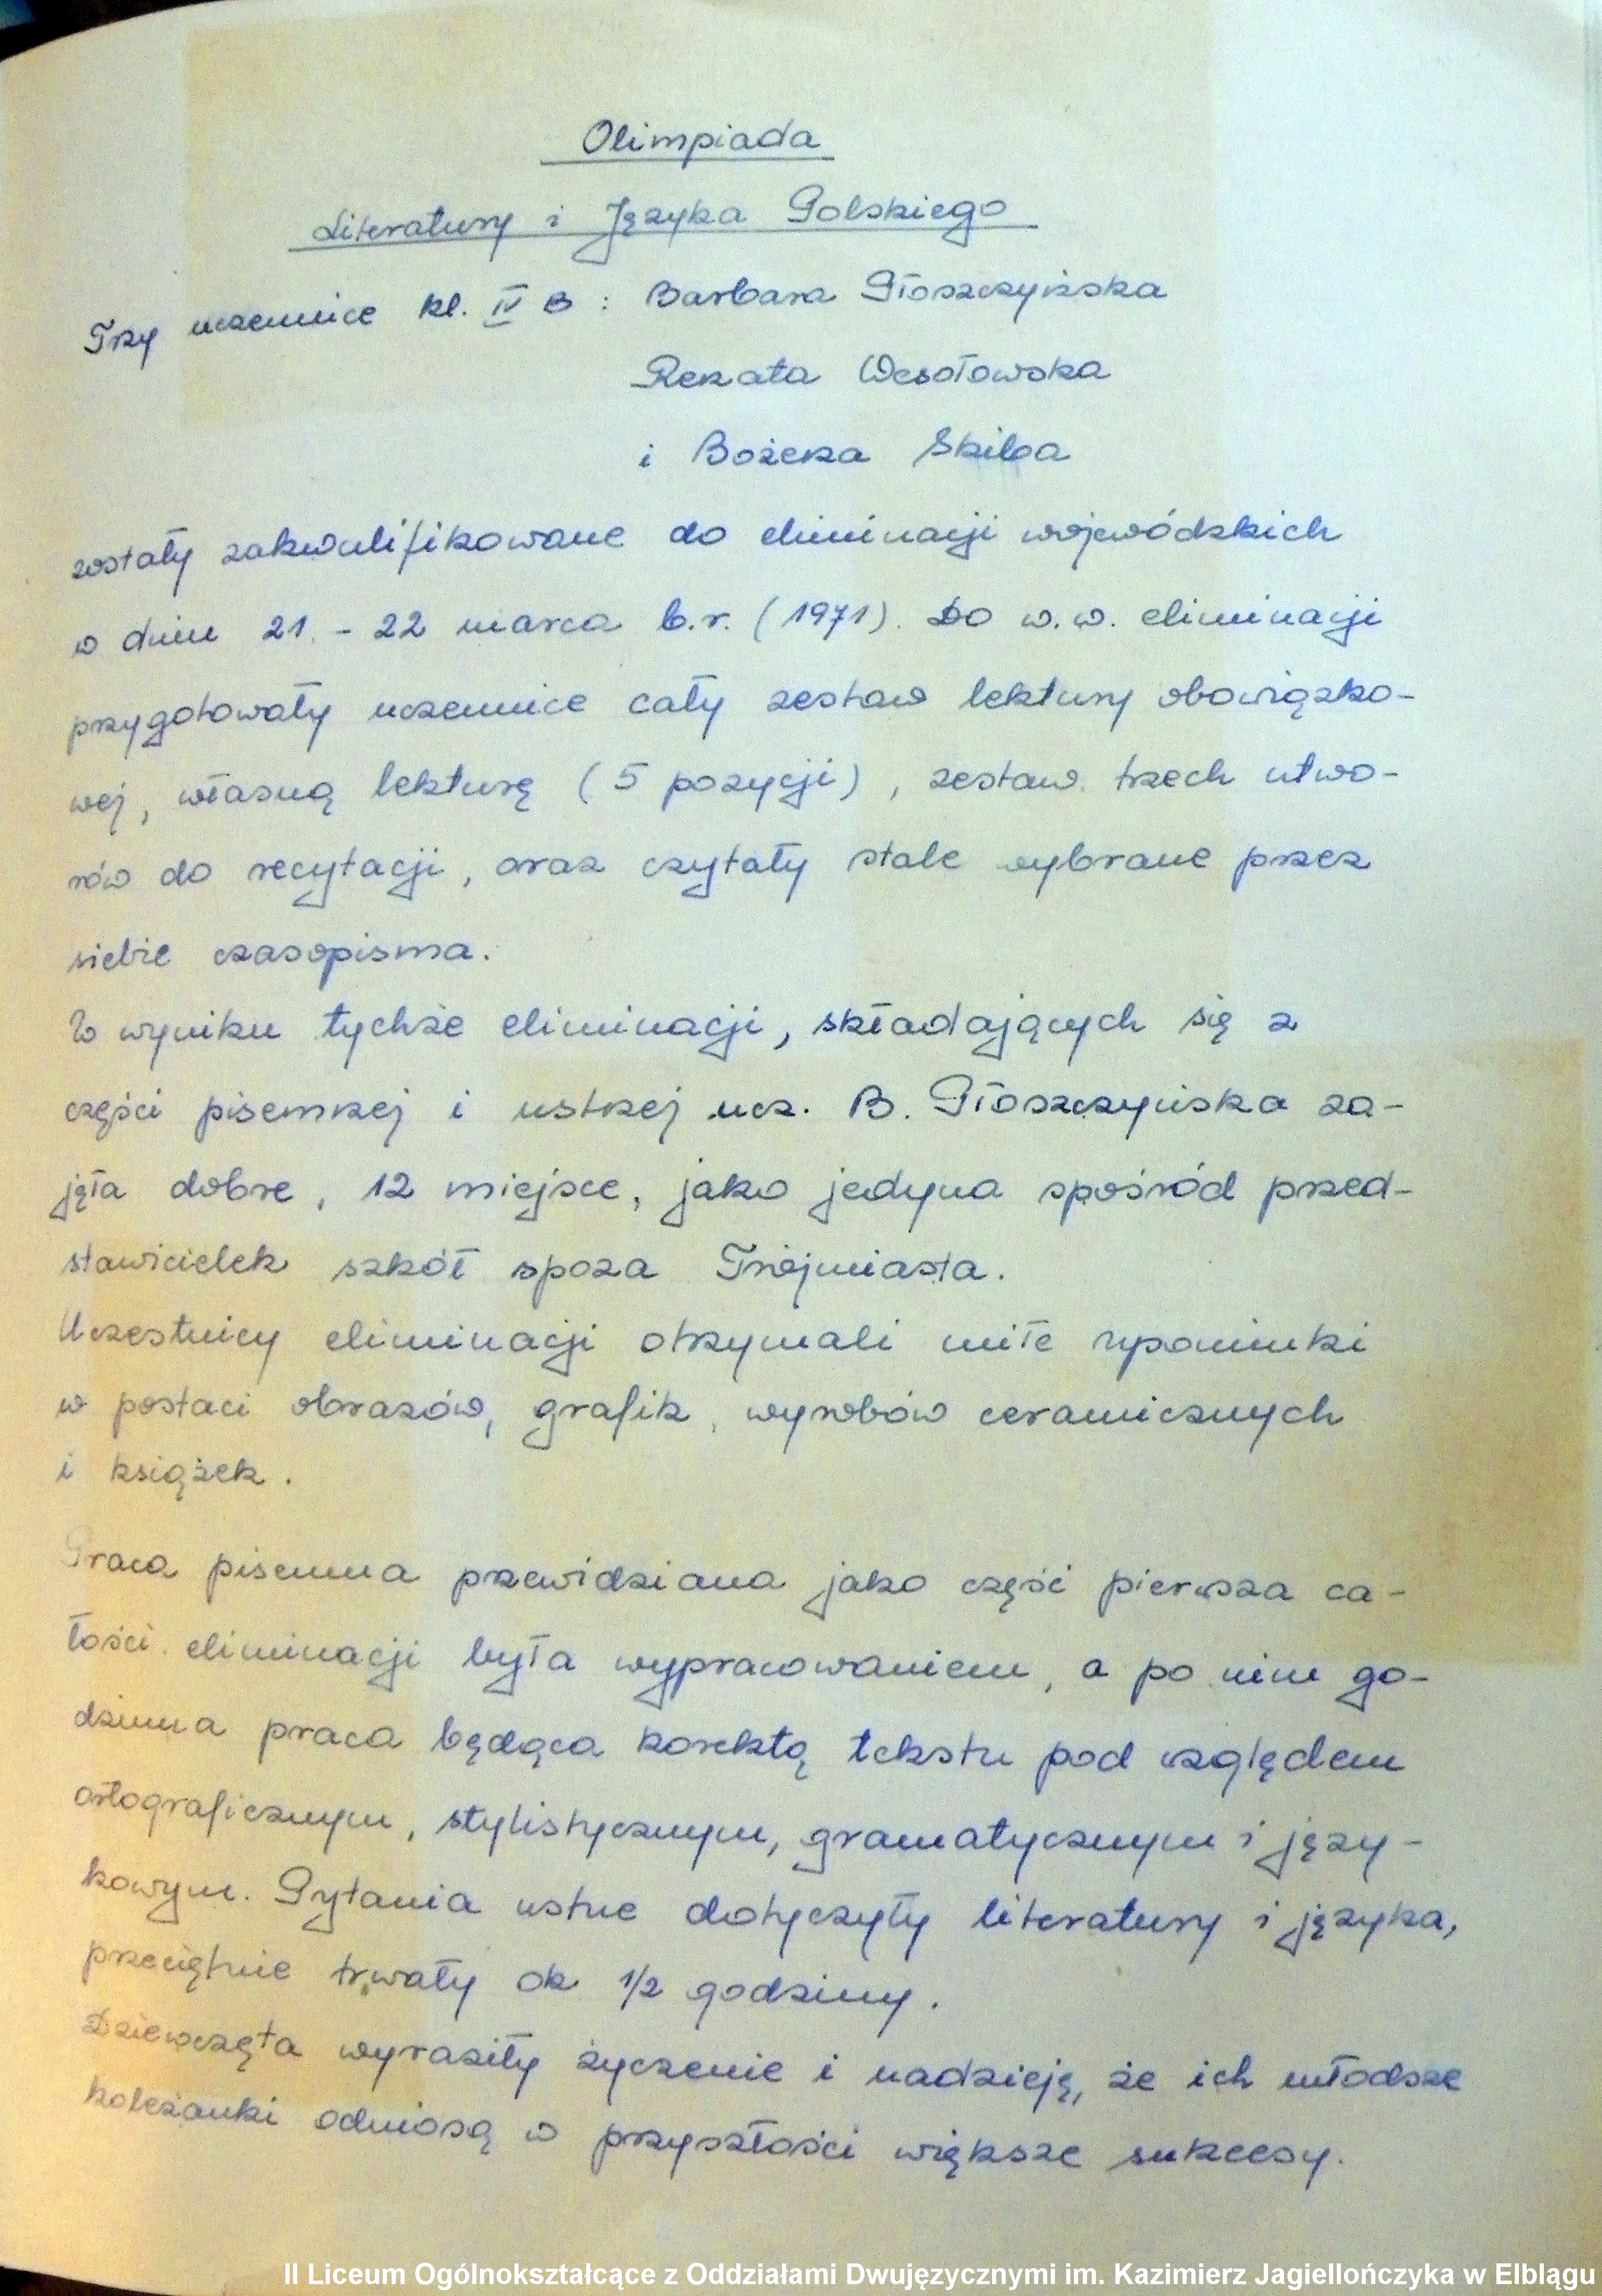 Olimpiada
Literatury i Języka Polskiego
Trzy uczennice kl. IV B : Barbara Płoszczyńska
Renata Wesołowska
i Bożena Skiba
zostały zakwalifikowane do eliminacji wojewódzkich
w dniu 21. - 22 marca b.r. (1971). Do w.w. eliminacji
przygotowały uczennice cały zestaw lektury obowiązko-
wej, własną lekturę (5 pozycji), zestaw trzech utwo-
rów do recytacji, oraz czytały stale wybrane przez
siebie czasopisma.
W wyniku tychże eliminacji, składających się z
części pisemnej i ustnej ucz. B. Płoszczyńska za-
jęła dobre, 12 miejsce, jako jedyna spośród przed-
stawicielek szkół spoza Trójmiasta.
Uczestnicy eliminacji otrzymali miłe upominki
w postaci obrazów, grafik, wyrobów ceramicznych
i książek.
Praca pisemna przewidziana jako część pierwsza ca-
łości eliminacji była wypracowaniem, a po nim go-
dzinna praca będąca korektą tekstu pod względem
ortograficznym, stylistycznym, gramatycznym i języ-
kowym. Pytania ustne dotyczyły literatury i języka,
przeciętnie trwały ok 1/2 godziny.
Dziewczęta wyraziły życzenie i nadzieję, że ich młodsze
koleżanki odniosą w przyszłości większe sukcesy.
II Liceum Ogólnokształcące z Oddziałami Dwujęzycznymi im. Kazimierz Jagiellończyka w Elblągu